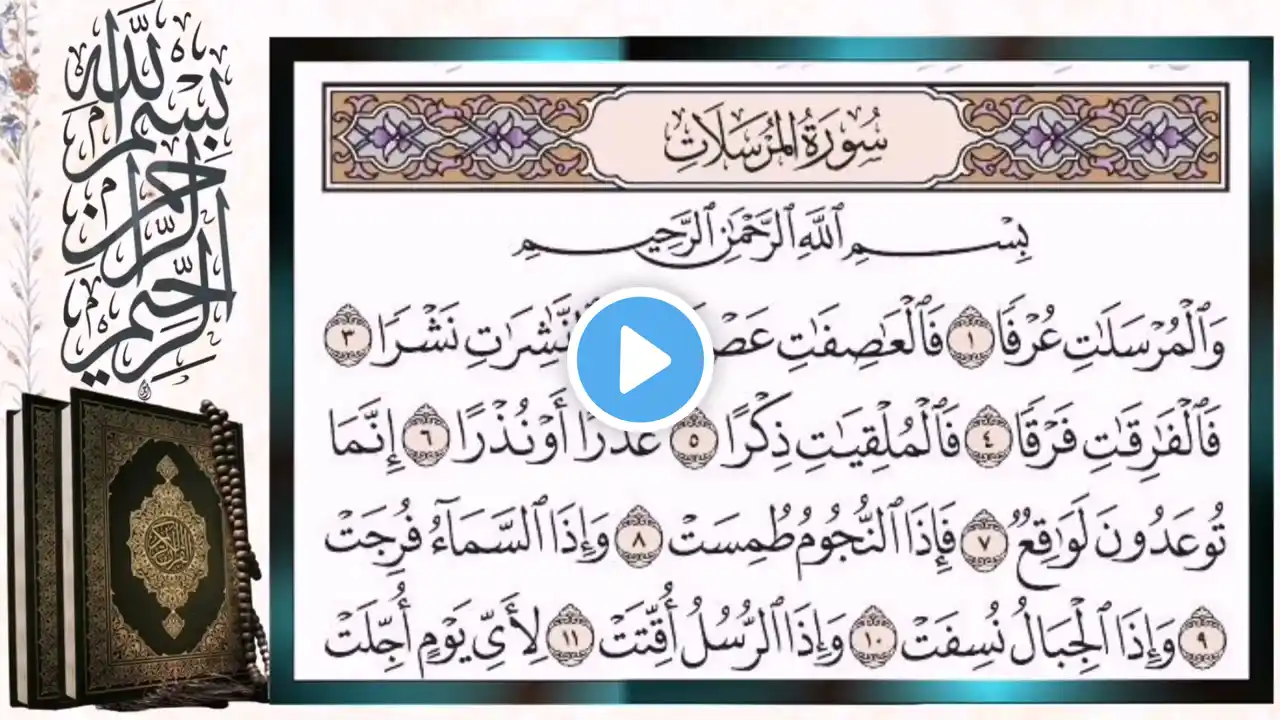 بِسْمِ اللَّهِ الرَّحْمَٰنِ الرَّحِيمِ
سُورَةُ الْمُرْسَلَاتِ
بِسْمِ ٱللَّهِ ٱلرَّحْمَٰنِ ٱلرَّحِيمِ
وَٱلْمُرْسَلَٰتِ عُرْفًا ١ فَٱلْعَٰصِفَٰتِ نَشْرًا ٣
فَٱلْفَٰرِقَٰتِ فَرْقًا ٤ فَٱلْمُلْقِيَٰتِ ذِكْرًا ٥ عُذْرًا أَوْ نُذْرًا ٦ إِنَّمَا
تُوعَدُونَ لَوَٰقِعٌ ٧ فَإِذَا ٱلنُّجُومُ طُمِسَتْ ٨ وَإِذَا ٱلسَّمَآءُ فُرِجَتْ
٩ وَإِذَا ٱلْجِبَالُ نُسِفَتْ ١٠ وَإِذَا ٱلرُّسُلُ أُقِّتَتْ ١١ لِأَىِّ يَوْمٍ أُجِّلَتْ